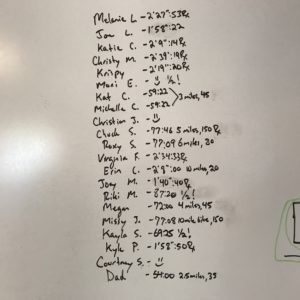 Melanie L - 2'27":53Rx
Jon L. - 1'58":22
Katie C. - 2'9":14Rx
Christy M. - 2'39":19Rx
Krispy - 2'19":20Rx
Mari E. - ½!
Kat C. - 59:22
3 miles, 45
Michelle C. - 59:22
Christian J. -
Chuck S. - 77:46 5 miles, 150 Rx
Roxy S. - 77:09 6 miles, 20
Virginia F. - 2'34:33Rx
Erin C. - 2'8":00 10 miles, 20
Joey M. - 1'40":40Rx
Riki M. - 87:20 ½!
Megan - 72:00 4 miles, 45
Missy J. - 77:08 10 mile bike, 150
Kayla S. - 69:25 ½!
Kyle P. - 1'53":50Rx
Courtney S. -
Dad - 54:00 2.5 miles, 35